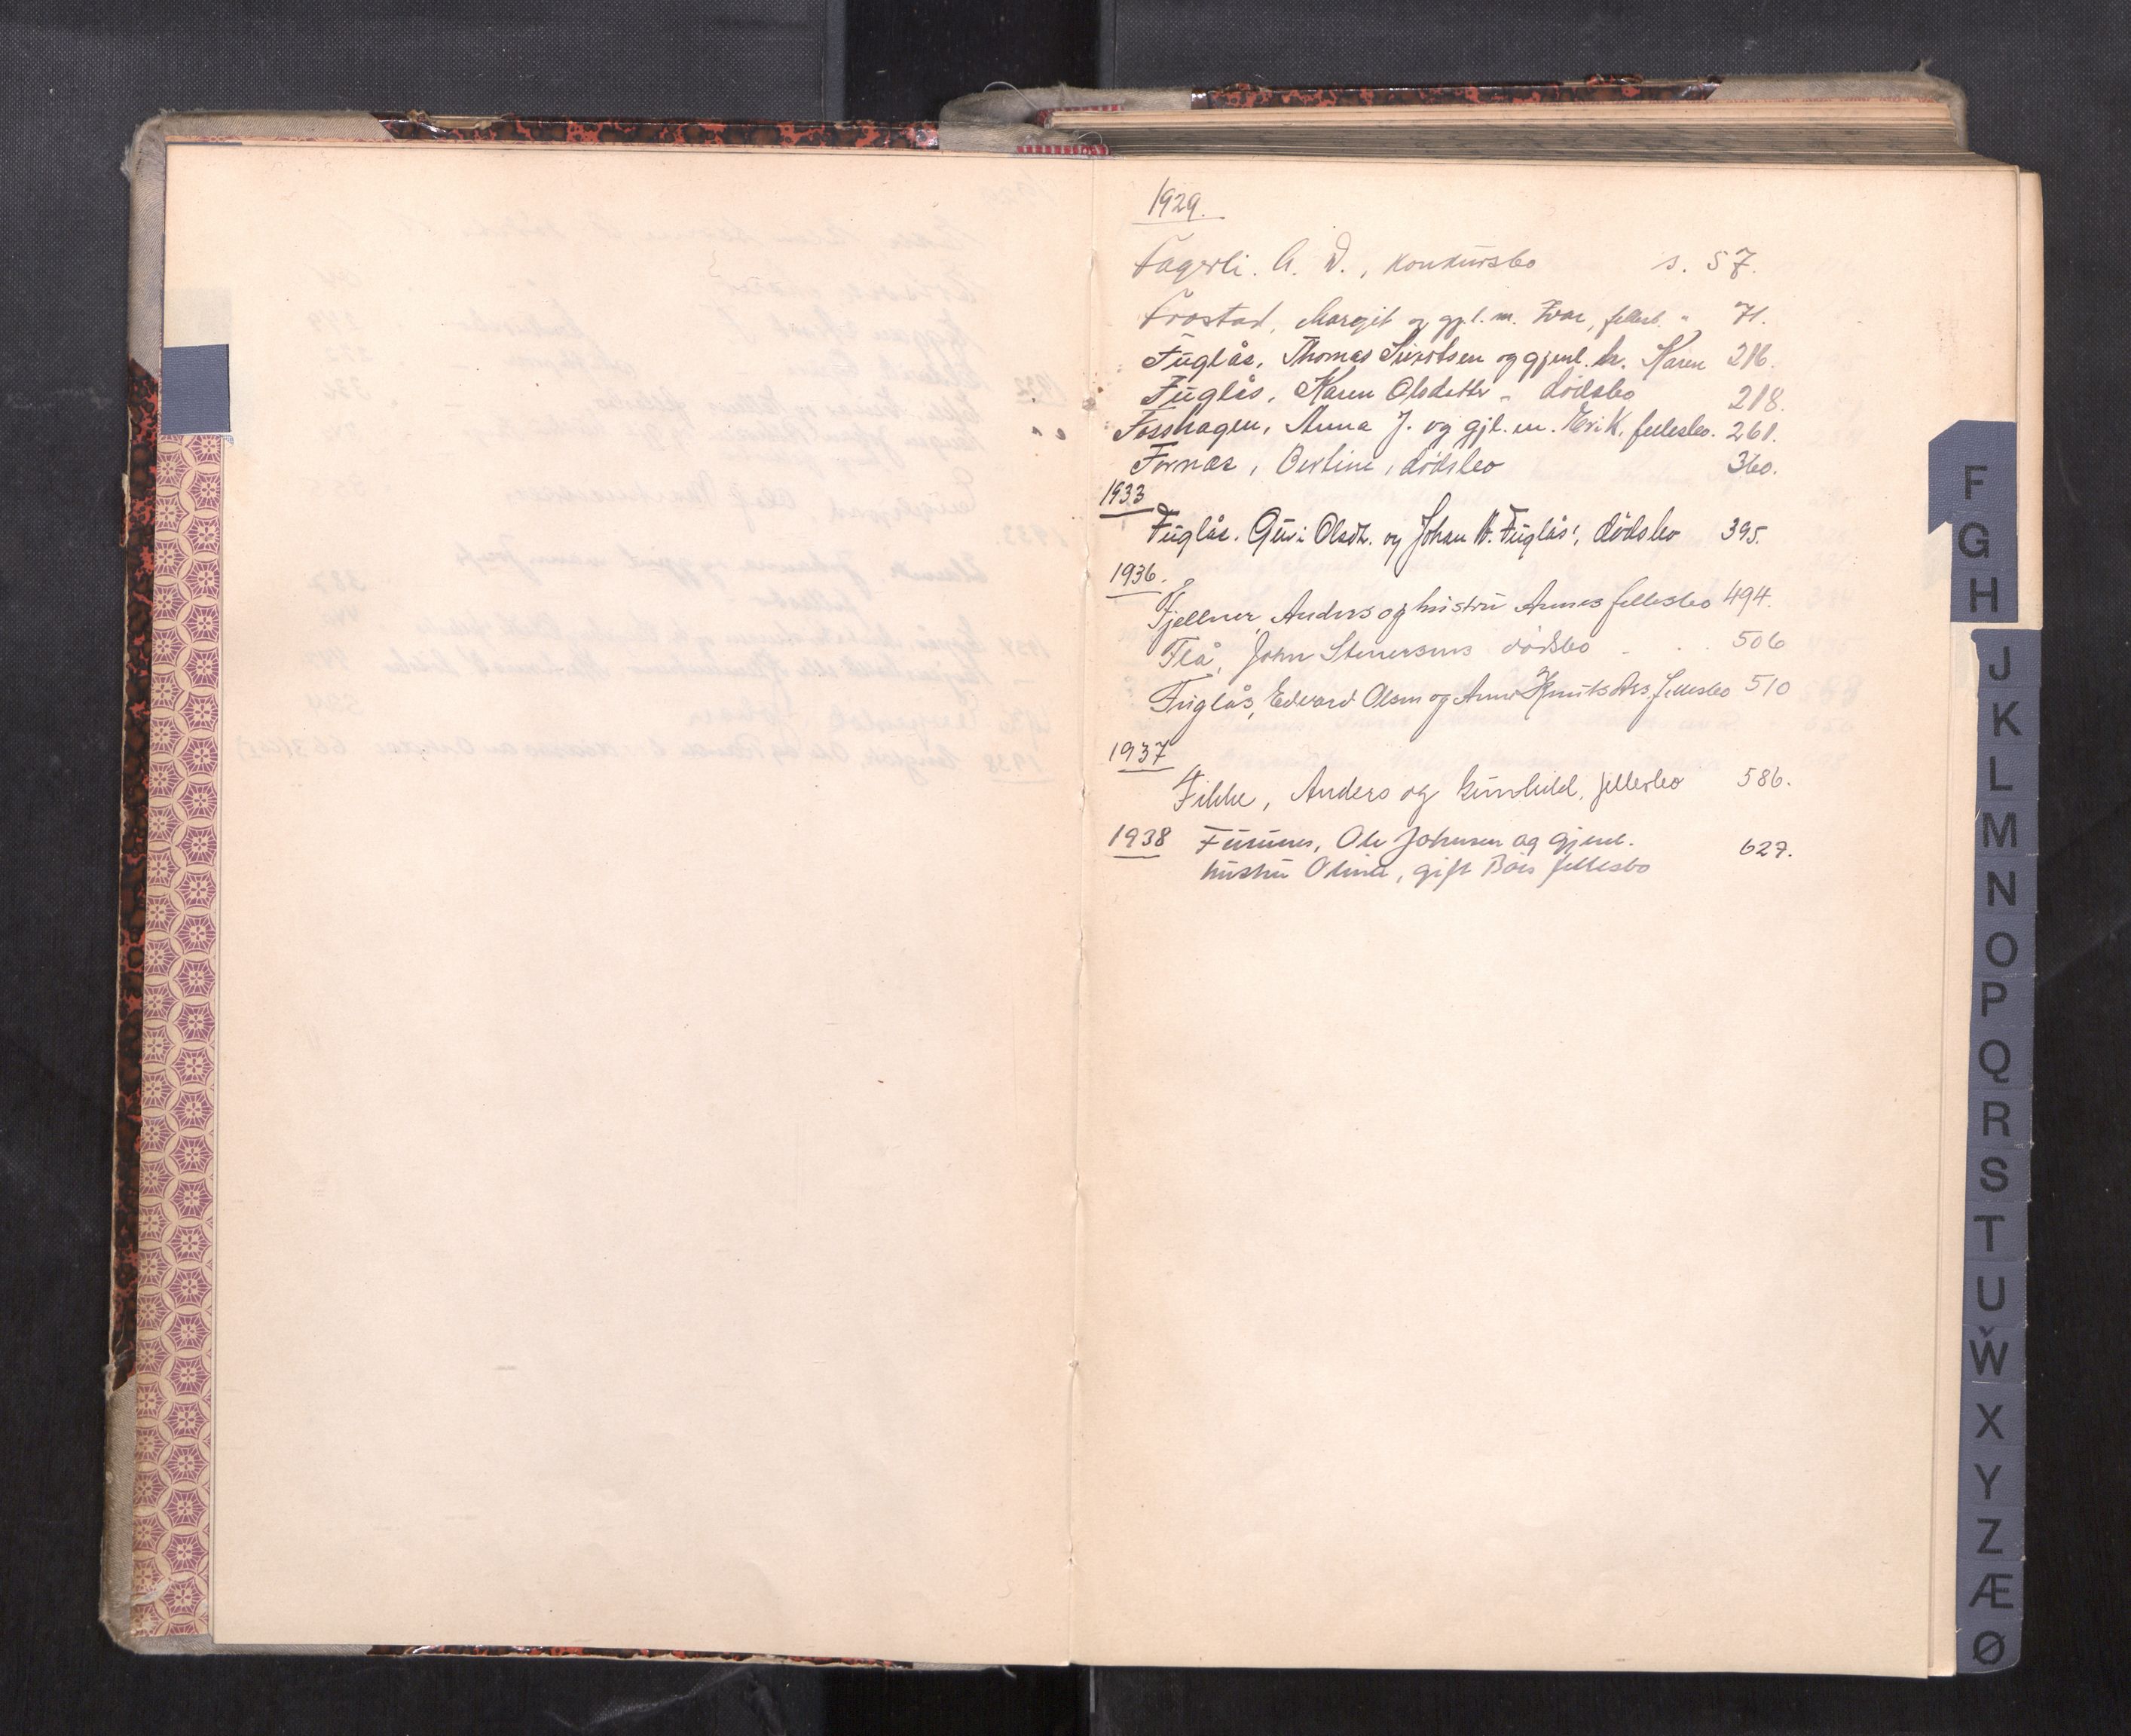 1929.
Fagerli. A. D., konkursbo s. 57.
Frostad, Margit og gjl. m. Ivar, fellesb. " 71.
Fuglås, Thomas Sivertsen og gjenl. h. Karen 216.
Fuglås, Karen Olsdatter - dødsbo 218.
Fosshagen, Anna J. og gjl. m. Erik, fellesbo. 261.
Fornæs, Bertine, dødsbo 360.
1933
Fuglås. Guri Olsdt. og Johan N. Fuglås', dødsbo 395.
1936.
Fjellner, Anders og hustru Annes fellesbo 494.
Flå, John Stenersens dødsbo - . . 506
Fuglås, Edvard Olsen og Anne Knutsdtrs. fellesbo 510
1937
Fikke, Anders og Gunhild, fellesbo 586.
1938 Funnes, Ole Johnsen og gjenl. 627.
hustru Olina, gift Bøes fellesbo
F
G
H
J
K
L
M
N
O
P
Q
R
S
T
U
W
X
Y
Z
Æ
Ø